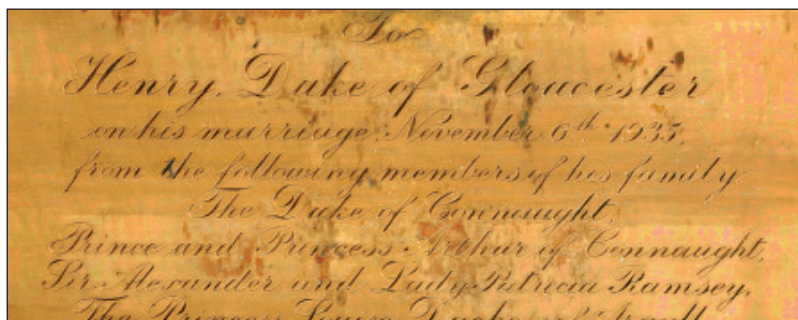 To
Henry, Duke of Gloucester
on his marriage, November 6th 1935,
from the following members of his family
The Duke of Connaught,
Prince and Princess Arthur of Connaught,
Sir Alexander and Lady Patricia Ramsey,
The Princess Louise Duchess of Argyll